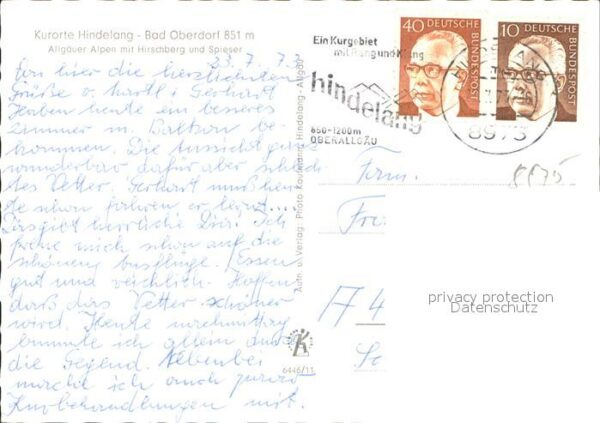 Kurorte Hindelang - Bad Oberdorf 851 m
Allgäuer Alpen mit Hirschberg und Spieser
23.7.73
Von hier die herzlichsten
Grüße v. Hartl + Gerhart
Haben heute ein besseres
Zimmer m. Balkon be-
kommen. Die Aussicht ganz
wunderbar dafür aber schlech-
tes Wetter. Gerhart muß heu-
te schon fahren er
Es gibt herrliche Ich
freue mich schon auf die
schönen Ausflüge. Essen
gut und reichlich. Hoffen
daß das Wetter schöner
wird. Heute nachmittag
ich allein
die Gegend. Nebenbei
mache ich auch
Kurbehandlungen mit.
Autn. u. Verlag: Photo Kaufmann, Hindelang - Allgäu
6446/11
Ein Kurgebiet
mit Rang und Klang
hindelang
850-1200m
OBERALLGÄU
40 DEUTSCHE BUNDESPOST
10 DEUTSCHE BUNDESPOST
HINDELANG
8973
Fam.
Fri
A 4
privacy protection
Datenschutz